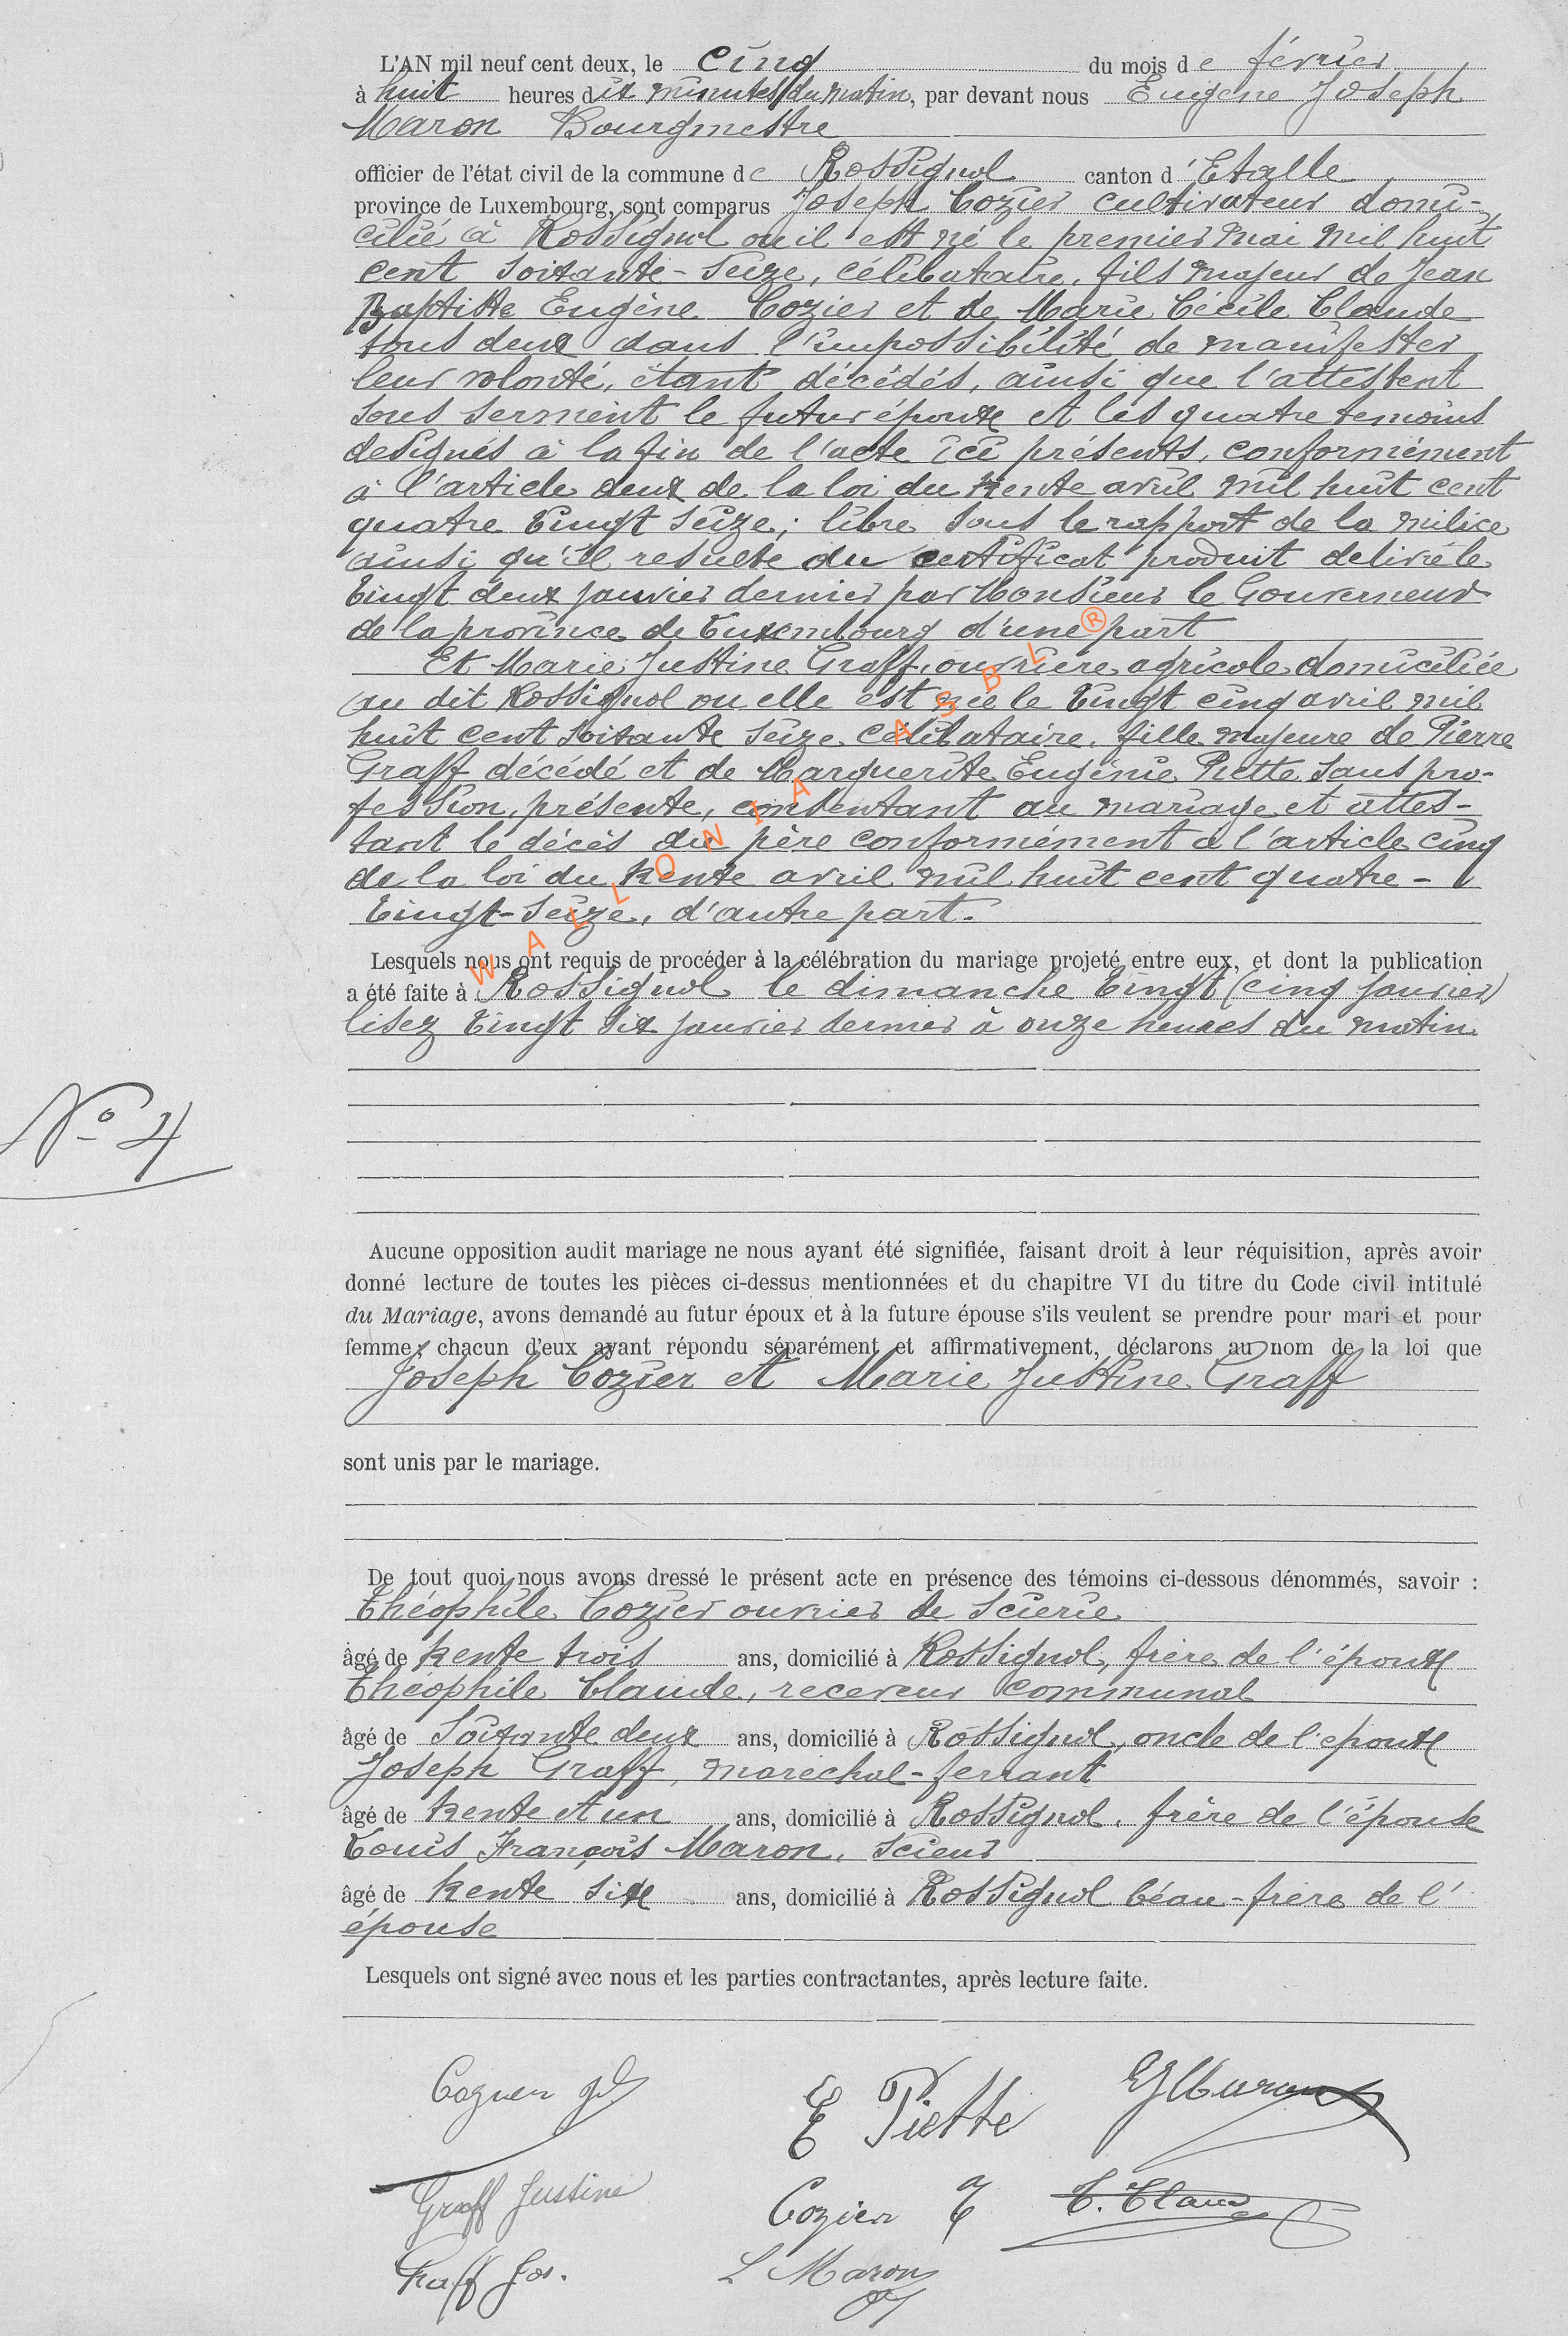 L'AN mil neuf cent deux, le cinq du mois de février
à huit heures dix minutes du matin, par devant nous Eugène Joseph
Maron Bourgmestre
officier de l'état civil de la commune de Rossignol canton d'Etalle
province de Luxembourg, sont comparus Joseph Cozier cultivateur domi-
cilié à Rossignol ou il est né le premier mai mil huit
cent soixante-seize, célibataire, fils majeur de Jean
Baptiste Eugène Cozier et de Marie Cécile Claude
tous deux dans l'impossibilité de manifester
leur volonté, étant décédés, ainsi que l'attestent
sous serment le futur époux et les quatre temoins
designés à la fin de l'acte ici présents, conformément
à l'article deux de la loi du trente avril mil huit cent
quatre vingt seize; libre sous le rapport de la milice
ainsi qu'il resulte du certificat produit delivré le
vingt deux janvier dernier par Monsieur le Gouverneur
de la province de Luxembourg d'une part
Et Marie Justine Graff, ouvrière agricole domiciliée
au dit Rossignol ou elle est née le vingt cinq avril mil
huit cent soixante seize célibataire, fille majeure de Pierre
Graff décédé et de Marguerite Eugénie Piette sans pro-
fession, présente, consentant au mariage et attes-
tant le décès du père conformément a l'article cinq
de la loi du trente avril mil huit cent quatre-
vingt-seize, d'autre part.
WALLONIA ASBL ®
Lesquels nous ont requis de procéder à la célébration du mariage projeté entre eux, et dont la publication
a été faite à Rossignol le dimanche vingt (cinq janvier)
lisez vingt six janvier dernier à onze heures du matin.
No 4
Aucune opposition audit mariage ne nous ayant été signifiée, faisant droit à leur réquisition, après avoir
donné lecture de toutes les pièces ci-dessus mentionnées et du chapitre VI du titre du Code civil intitulé
du Mariage, avons demandé au futur époux et à la future épouse s'ils veulent se prendre pour mari et pour
femme; chacun d'eux ayant répondu séparément et affirmativement, déclarons au nom de la loi que
Joseph Cozier et Marie Justine Graff
sont unis par le mariage.
De tout quoi nous avons dressé le présent acte en présence des témoins ci-dessous dénommés, savoir :
Théophile Cozier ouvrier de scierie
âgé de trente trois ans, domicilié à Rossignol, frère de l'époux
Théophile Claude, receveur communal
âgé de soixante deux ans, domicilié à Rossignol, oncle de l'epoux
Joseph Graff, maréchal-ferrant
âgé de trente et un ans, domicilié à Rossignol, frère de l'épouse
Louis François Maron, scieur
âgé de trente six ans, domicilié à Rossignol béau-frère de l'
épouse
Lesquels ont signé avec nous et les parties contractantes, après lecture faite.
Cozier Js
E Piette
EJMaron
Graff Justine
Cozier T
T. Claude
Graff Jos.
L Maron